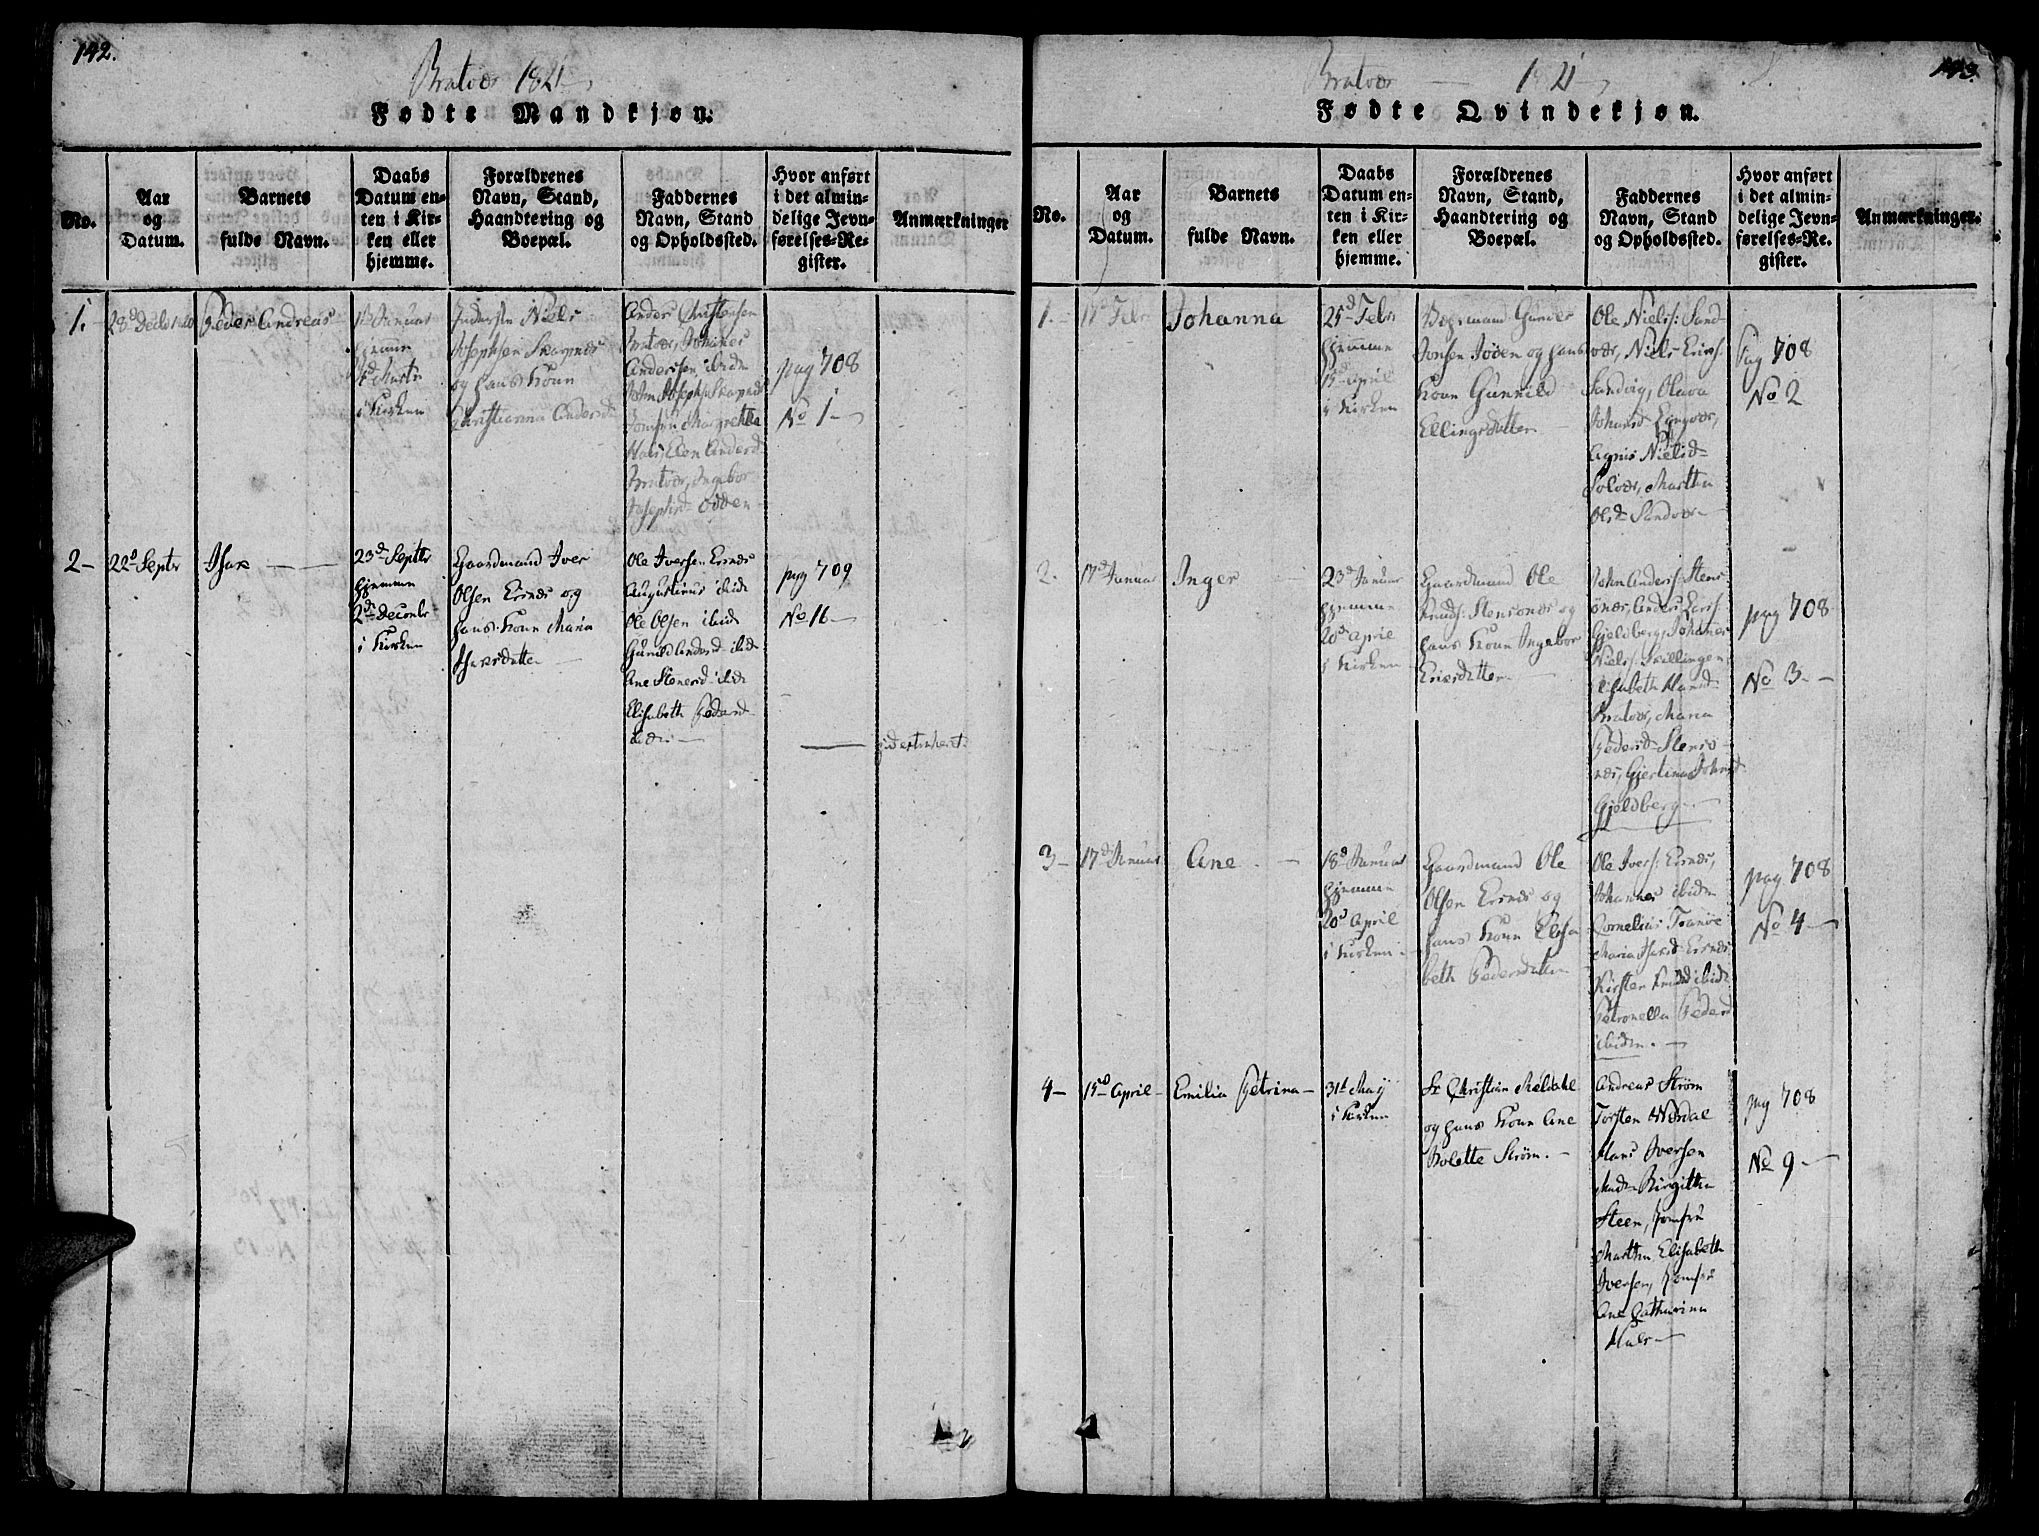 142.
Bratvær 1821
Fødte Mandkjøn.
No.
Aar
og
Datum.
Barnets
fulde Navn.
Daabs
Datum en-
ten i Kir-
ken eller
hjemme.
Forældrenes
Navn, Stand,
Haandtering og
Boepæl.
Faddernes
Navn, Stand
og Opholdssted.
Hvor anført
i det almin-
delige Jevn-
førelses-Re-
gister.
Anmærkninger
1.
28d Decbr 1820
Peder Andreas
Januar
hjemme
Martz
i Kirken
Inderste Niels
Josephsen Skarpnes
og hans Kone
Christianna Andersd
Anders Christensen
Bratvær, Johannes
Anderssen, ibidm
John Josephs: Skarpnes
Jomfru Margrethe
Elen Andersd
Bratvær, Ingebor
Josephsd Odden
pag 708
No 1
2
22d Septr
Isax
23d Septbr
hjemme
2den Decembr
i Kirken
Gaardmand Iver
Olsen Ersnes og
hans Kone Maria
Isaxdatter
Ole Iversen Ersnes
Augustinus ibid:
Ole Olsen ibid:
Gunild Andersd ibid:
Ane Stenersd ibid:
Elisabeth Pedersd
ibid:
pag 709
No 16
143.
Bratvær 1821
Fødte Qvindekjøn.
No.
Aar
og
Datum.
Barnets
fulde Navn.
Daabs
Datum en-
ten i Kir-
ken eller
hjemme.
Forældrenes
Navn, Stand,
Haandtering og
Boepæl.
Faddernes
Navn, Stand
og Opholdssted.
Hvor anført
i det almin-
delige Jevn-
førelses-Re-
gister.
Anmærkninger.
1.
17d Febr
Johanna
25d Febr
hjemme
15d April
i Kirken
Gunder
Jonsen Jøden og hans
Kone Gunnild
Ellingsdatter
Ole Niels: Sand-
vær, Niels Erics:
Sandvig, Olava
Johansd
Agnis Nielsd
Solvær, Martha
Olsd Sandvær
Pag 708
No 2
2.
17d Januar
Inger
23d Januar
hjemme
20d April
i Kirken
Gaardmand Ole
Knuds: Stensønes og
hans Kone Ingebor
Ericsdatter
John Anders: Stens
ønes, Anders
Gjeldberg, Johannes
Niels: Skillingen
Elisabeth Hansd
Bratvær, Maria
Pedersd Stensø-
nes, Gjertina Johnsd
Gjeldberg
pag 708
No 3
3
17d Januar
Ane
18d Januar
hjemme
20d April
i Kirken
Gaardmand Ole
Olsen Ersnes og
hans Kone Elisa
beth Pedersdatter
Ole Ivers: Ersnes,
Johannes ibidm
Cornelius Tranøe
Maria Isaxd: Ersnes
Kirsten Knudsd ibidm
Petronella Pedersd
ibidm.
pag 708
No 4
4
15d April
Emilia Petrina
31d May
i Kirken
Sr Christian Meldahl
og hans Kone Ane
Bolette Strøm.
Andreas Strøm
Torsten Nerdal
Hans Iversen
Madm Birgitha
Steen, Jomfru
Martha Elisabeth
Iversen, Jomfru
Ane Catharina
pag 708
No 9